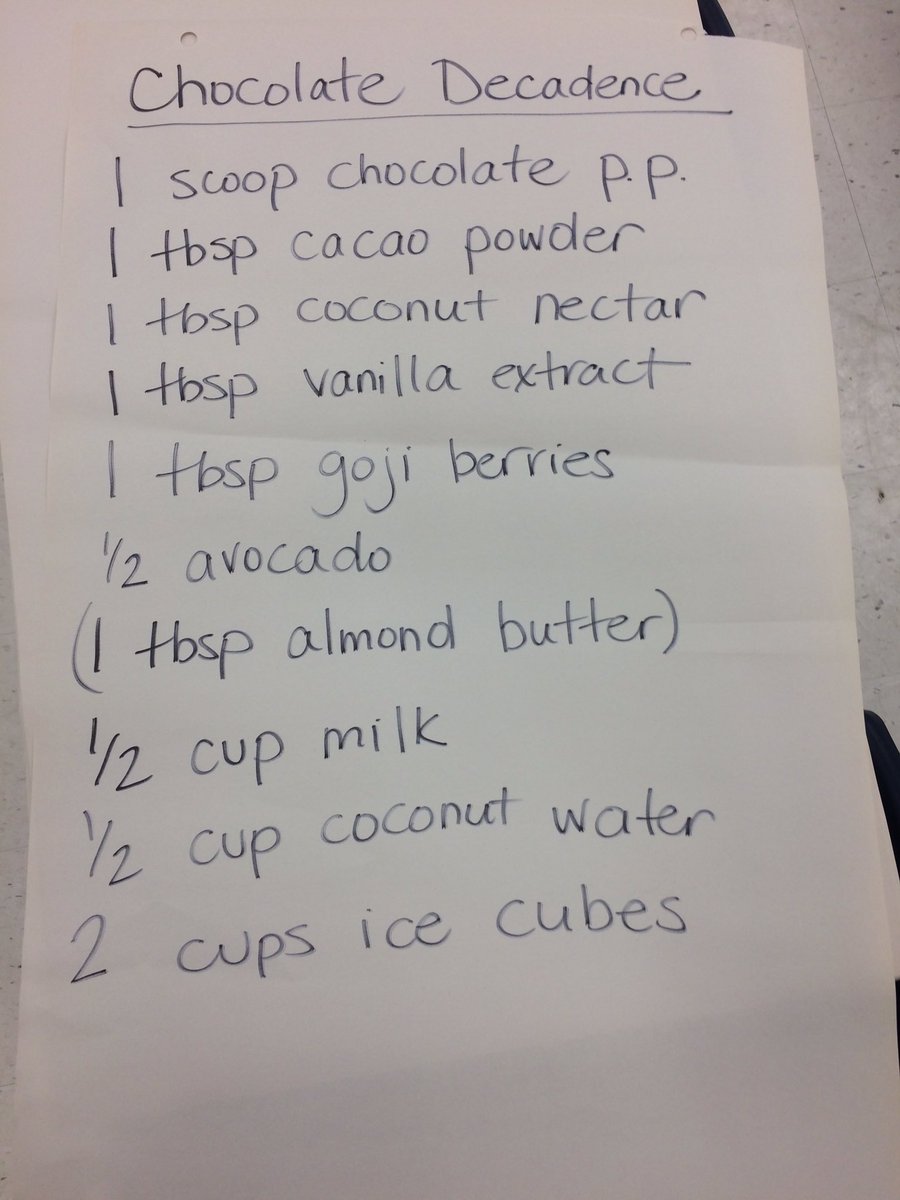 Chocolate Decadence
1 scoop chocolate p.p.
1 tbsp cacao powder
1 tbsp coconut nectar
1 tbsp vanilla extract
1 tbsp goji berries
1/2 avocado
(1 tbsp almond butter)
1/2 cup milk
1/2 cup coconut water
2 cups ice cubes